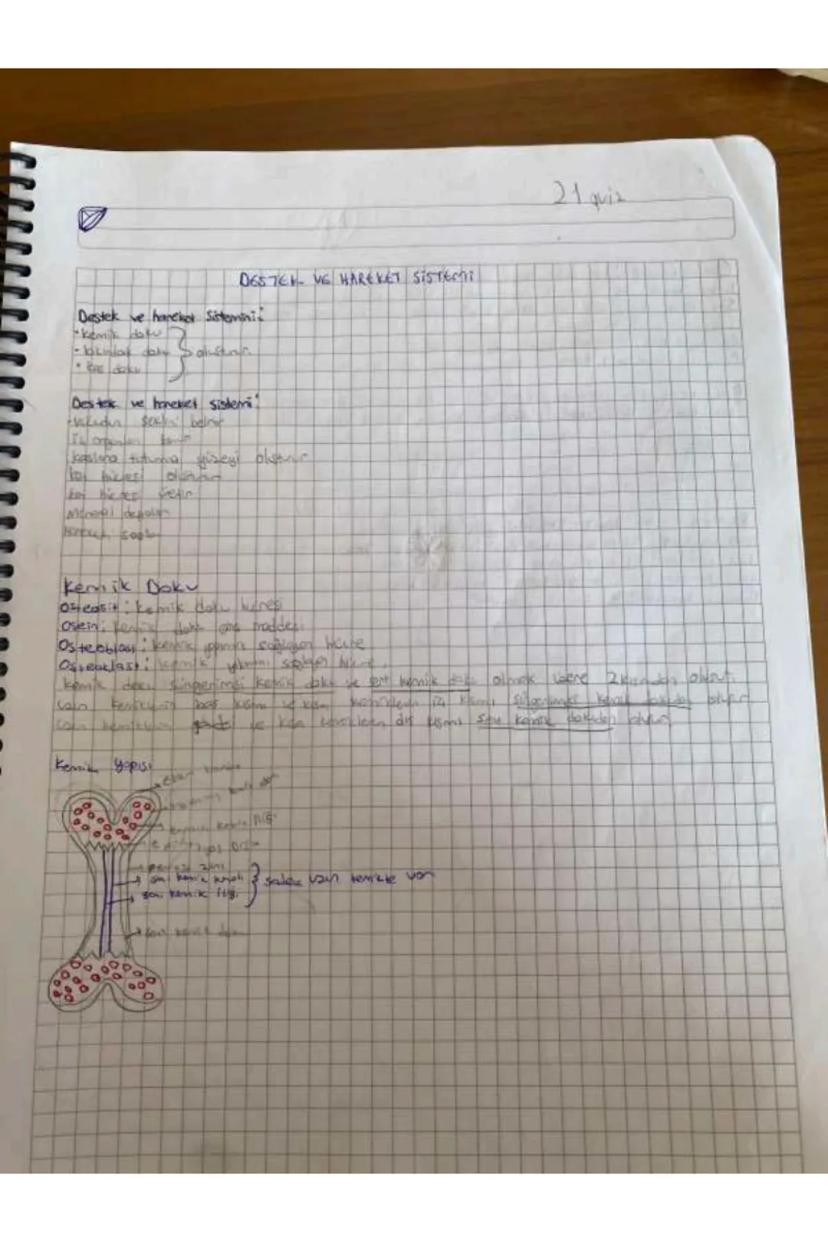 21 quiz
DESTEK VE HAREKET SİSTEMİ
Destek ve hareket Sistemini:
• Kemik doku
• kıkırdak doku } oluşturur
• kas doku
Destek ve hareket sistemi:
Vücudun şeklini belirler
İç organları korur
kaslara tutunma yüzeyi oluşturur
kan hücresi
kan hücresi üretir
Mineral depolar
Hareket sağlar
Kemik Doku
Osteosit: kemik doku hücresi
Osein: kemik doku ara maddesi
Osteoblast: kemik yapımını sağlayan hücre
Osteoklast: kemik yıkımını sağlayan hücre.
kemik doku süngerimsi kemik doku ve sert kemik doku olmak üzere 2 kısımdan oluşur.
uzun kemiklerin baş kısmı ve kısa kemiklerin iç kısmı süngerimsi kemik dokudan oluşur
uzun kemiklerin ve kısa kemiklerin dış kısmı sıkı kemik dokudan oluşur
Kemik Yapısı
kırmızı kemik iliği
sarı kemik kanalı
sarı kemik iliği } sadece uzun kemikte var